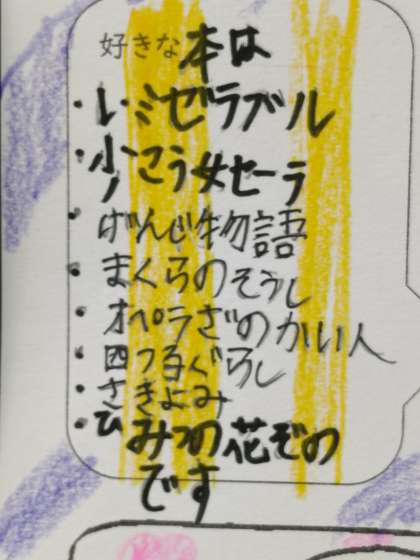 好きな本は
・レミゼラブル
・少こう女セーラ
・げんじ物語
・まくらのそうし
・オペラざのかい人
・四つ子ぐらし
・さきよみ
・ひみつの花ぞの
です